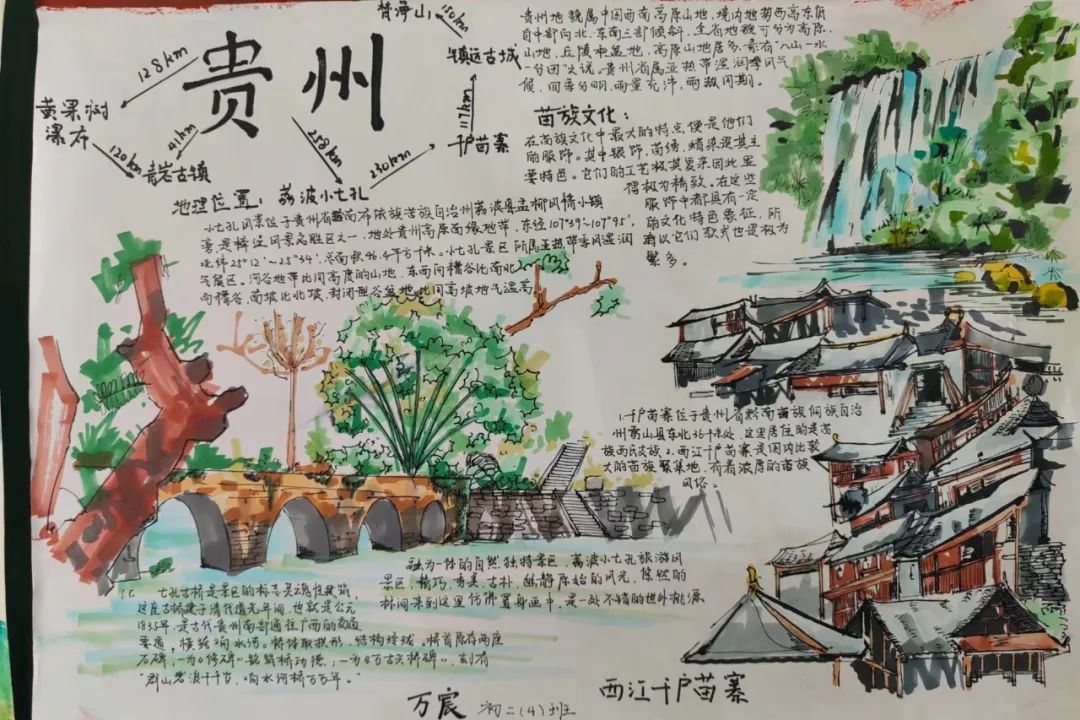 贵州
梵净山
150km
镇远古城
128km
黄果树
瀑布
41km
120km
青岩古镇
258km
230km
117km
千户苗寨
荔波小七孔
贵州地貌属中国西南高原山地,境内地势西高东低
自中部向北、东南三面倾斜,全省地貌可分为高原、
山地、丘陵和盆地,高原山地居多,素有"八山一水
一分田"之说。贵州省属亚热带湿润季风气
候,四季分明,雨量充沛,雨热同期。
苗族文化:
在苗族文化中最大的特点便是他们
的服饰。其中银饰,苗绣,蜡染是其主
要特色。它们的工艺极其复杂因此显
得极为精致。在这些
服饰中都具有一定
的文化特色象征,所
以它们款式也极为
繁多。
地理位置:
小七孔风景位于贵州省南布依族苗族自治州荔波县孟柳风情小镇
是樟江风景名胜区之一,地处贵州高原南缘地带,东经107°39′~107°45′,
北纬25°12′~25°34′,总面积46.4平方千米。小七孔景区所属亚热带季风湿润
气候区。河谷地带比同高度的山地,东西向槽谷比南北
向槽谷,南坡比北坡,封闭型谷盆地比同高坡地气温高
1.千户苗寨位于贵州省黔南苗族侗族自治
州雷山县东北36千米处,这里居住的是苗
族西氏支族 2.西江千户苗寨是国内比较
大的苗族聚集地,有着浓厚的苗族
风俗。
融为一体的自然独特景区,荔波小七孔旅游风
景区,精巧、秀美、古朴、幽静原始的风光,悠然的
林间来到这里仿佛置身画中,是一处不错的世外桃源
七孔古桥是景区的标志灵魂性建筑
这座古桥建于清代道光年间,也就是公元
1835年,是古代贵州南部通往广西的
要道,横跨响水河。桥体取拱形,结构玲珑。桥首原有两座
石碑,一为《修碑》铭筑桥功德;一为《万古兴桥碑》,刻有
"群山岩浪千千岁,响水河桥万万年。"
万宸 初二(4)班
西江千户苗寨